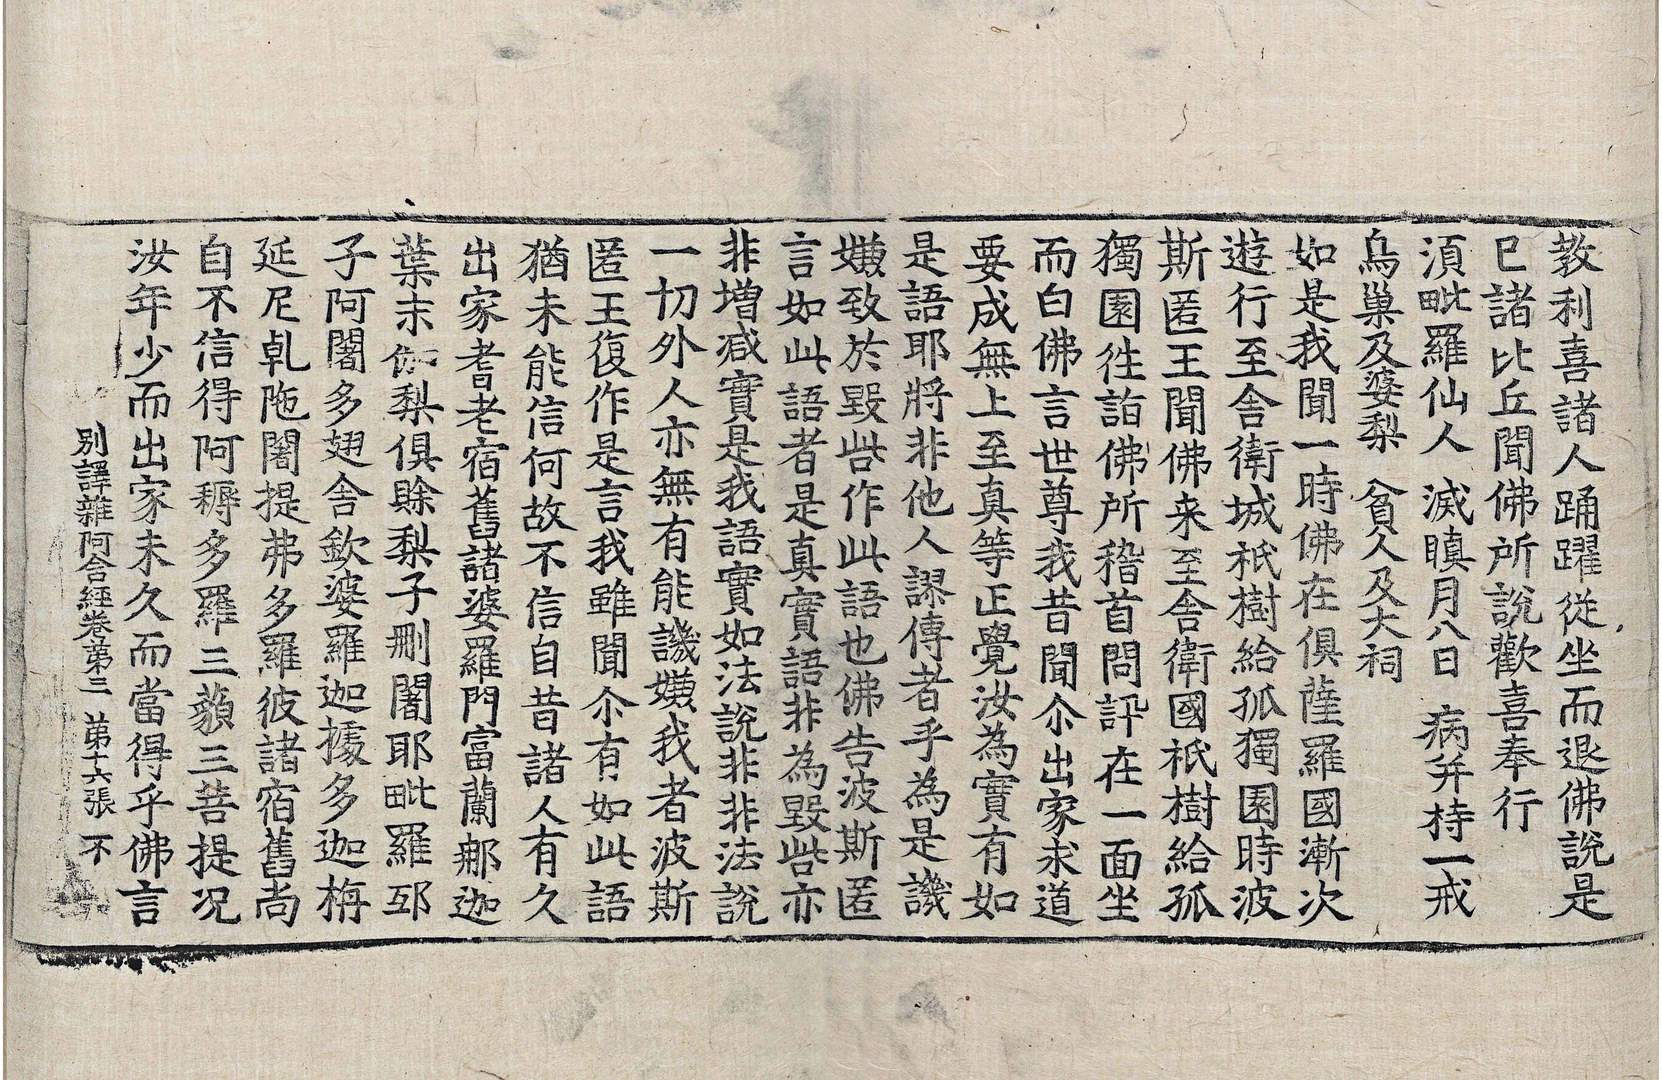 教利喜諸人踊躍從坐而退佛說是
已諸比丘聞佛所說歡喜奉行
湏毗羅仙人 滅瞋月八日 病并持一戒
鳥巢及婆梨 貧人及大祠
如是我聞一時佛在俱薩羅國漸次
遊行至舍衛城祇樹給孤獨園時波
斯匿王聞佛来至舍衛國祇樹給孤
獨園徃詣佛所稽首問訊在一面坐
而白佛言世尊我昔聞尒出家求道
要成無上至真等正覺汝為實有如
是語耶將非他人謬傳者乎為是譏
嫌致於毀呰作此語也佛告波斯匿
言如此語者是真實語非為毀呰亦
非增减實是我語實如法說非非法說
一切外人亦無有能譏嫌我者波斯
匿王復作是言我雖聞尒有如此語
猶未能信何故不信自昔諸人有久
出家耆老宿舊諸婆羅門富蘭那迦
葉末伽梨俱賖梨子刪闍耶毗羅邳
子阿闍多翅舍欽婆羅迦據多迦栴
延尼乹陁闍提弗多羅彼諸宿舊尚
自不信得阿耨多羅三藐三菩提况
汝年少而出家未久而當得乎佛言
別譯雜阿含經卷第三 第十六張 不